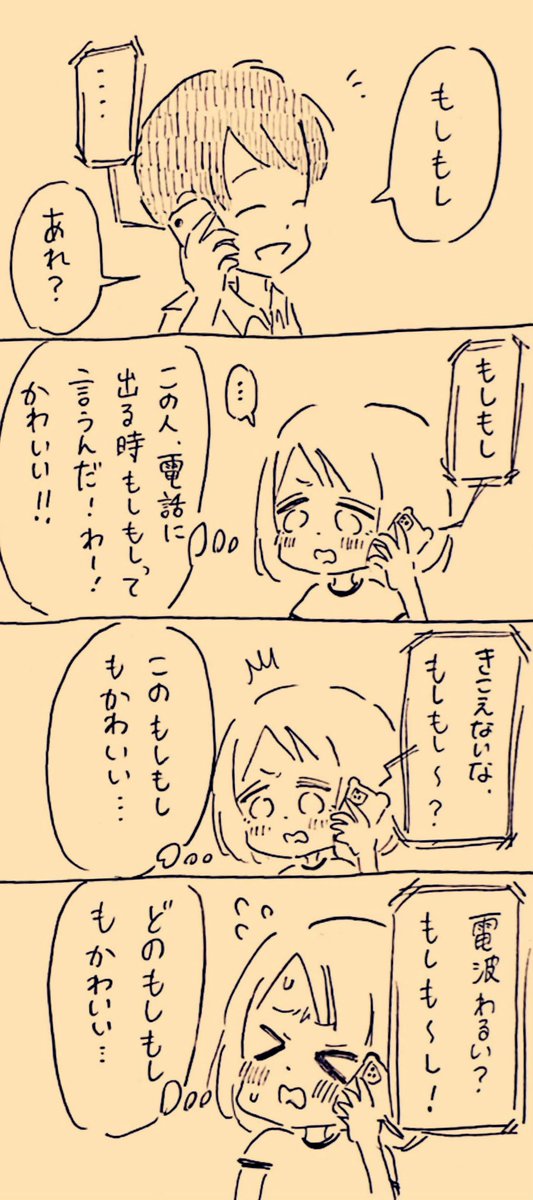 もしもし
・・・・
あれ？
もしもし
…
この人、電話に
出る時もしもしって
言うんだ！わー！
かわいい！！
きこえないな、
もしもし〜？
このもしもし
もかわいい…
電波わるい？
もしも〜し！
どのもしもし
もかわいい…